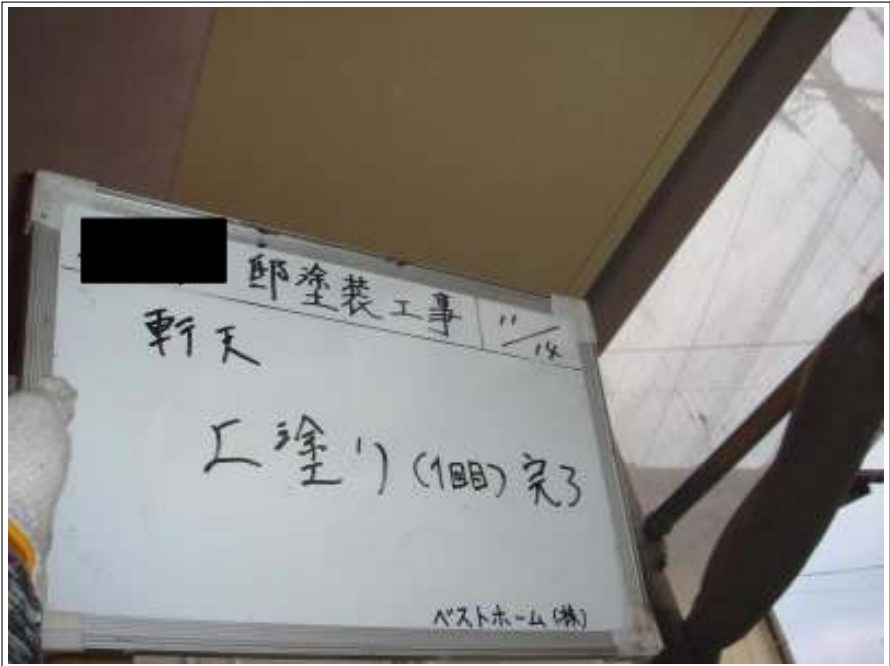 邸塗装工事 11/14
軒天
上塗り(1回目)完了
ベストホーム(株)